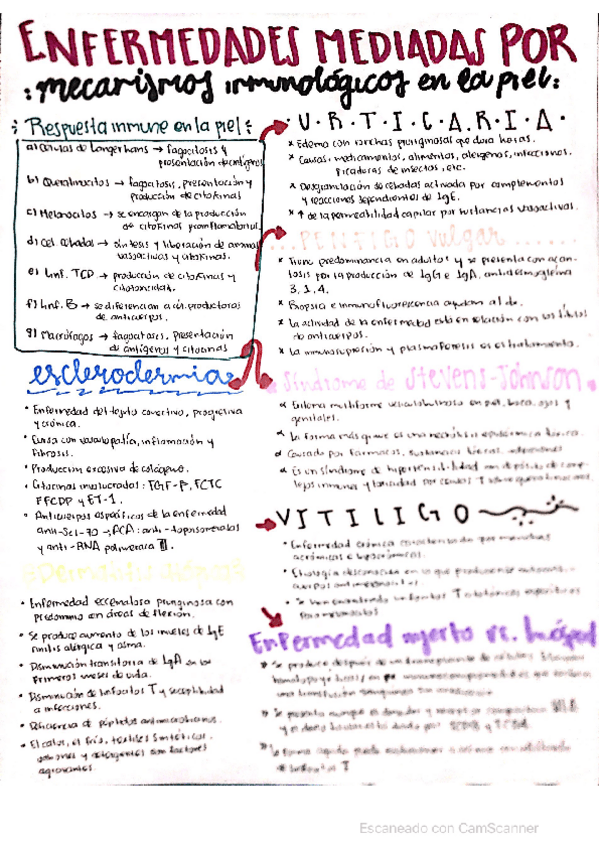 ENFERMEDADES MEDIADAS POR
: mecanismos inmunológicos en la piel :
Respuesta inmune en la piel
a) Células de Langerhans → fagocitosis y
presentación de antígenos
b) Queratinocitos → fagocitosis, presentación y
producción de citokinas
c) Melanocitos → se encargan de la producción
de citokinas proinflamatorias
d) Cel. Cebadas → síntesis y liberación de aminas
vasoactivas y citokinas.
e) Linf. TCD → producción de citokinas y
citotoxicidad.
f) Linf. B → se diferencian a cél. productoras
de anticuerpos.
g) Macrófagos → fagocitosis, presentación
de antígenos y citocinas
esclerodermia
• Enfermedad del tejido conectivo, progresiva
y crónica.
• Cursa con vasculopatía, inflamación y
fibrosis.
• Producción excesiva de colágeno.
• Citocinas involucradas: TGF-β, FCTC
FFCDP y ET-1.
• Anticuerpos específicos de la enfermedad
anti-Scl-70, ACA: anti-topoisomerasa
y anti-RNA polimerasa III.
Dermatitis Atópica
• Enfermedad eccematosa pruriginosa con
predominio en áreas de flexión.
• Se produce aumento de los niveles de IgE
rinitis alérgica y asma.
• Disminución transitoria de IgA en los
primeros meses de vida.
• Disminución de linfocitos T y susceptibilidad
a infecciones.
• Deficiencia de péptidos antimicrobianos.
• El calor, el frío, textiles sintéticos,
jabones y detergentes son factores
agravantes.
• U • R • T • I • C • A • R • I • A •
x Edema con ronchas pruriginosas que dura horas.
x Causas: medicamentos, alimentos, alergenos, infecciones,
picaduras de insectos, etc.
x Desgranulación de cebadas activada por complementos
y reacciones dependientes de IgE.
x ↑ de la permeabilidad capilar por sustancias vasoactivas.
.... PENFIGO vulgar ......
x Tiene predominancia en adultos y se presenta con acan-
tosis por la producción de IgG e IgA, antidesmogleína
3, 1, 4.
x Biopsia e inmunofluorescencia ayudan al dx.
x La actividad de la enfermedad está en relación con los títulos
de anticuerpos.
x La inmunosupresión y plasmaféresis es el tratamiento.
Síndrome de Stevens-Johnson
Eritema multiforme vesiculobuloso en piel, boca, ojos y
genitales.
La forma más grave es una necrólisis epidérmica tóxica.
Causado por fármacos, sustancias tóxicas, infecciones
Es un síndrome de hipersensibilidad con depósito de comp-
lejos inmunes y toxicidad por células T
VITILIGO
• Enfermedad crónica caracterizada por manchas
acrómicas e hipocrómicas.
• Etiología desconocida en la que producen
• Se han encontrado linfocitos T citotóxicos específicos
Enfermedad injerto vs. huésped
Se produce después de un transplante de células
La forma aguda puede
linfocitos T
Escaneado con CamScanner